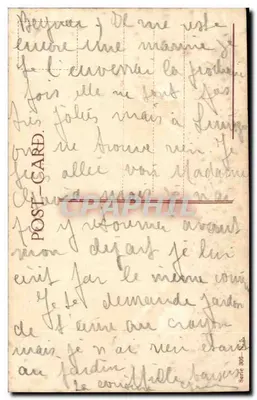 Il me reste
encore une mamie je
te l'enverrai la prochaine
fois elle ne sont pas
très jolies mais à Limoges
on ne trouve rien. Je
suis allée voir Madame
mais je n'ai
pu y retourner avant
mon départ je lui
écrit par le même courrier
Je te demande pardon
de t'écrire au crayon
mais je n'ai rien étant
au jardin. Mille baisers
POST-CARD.
CPAPHIL